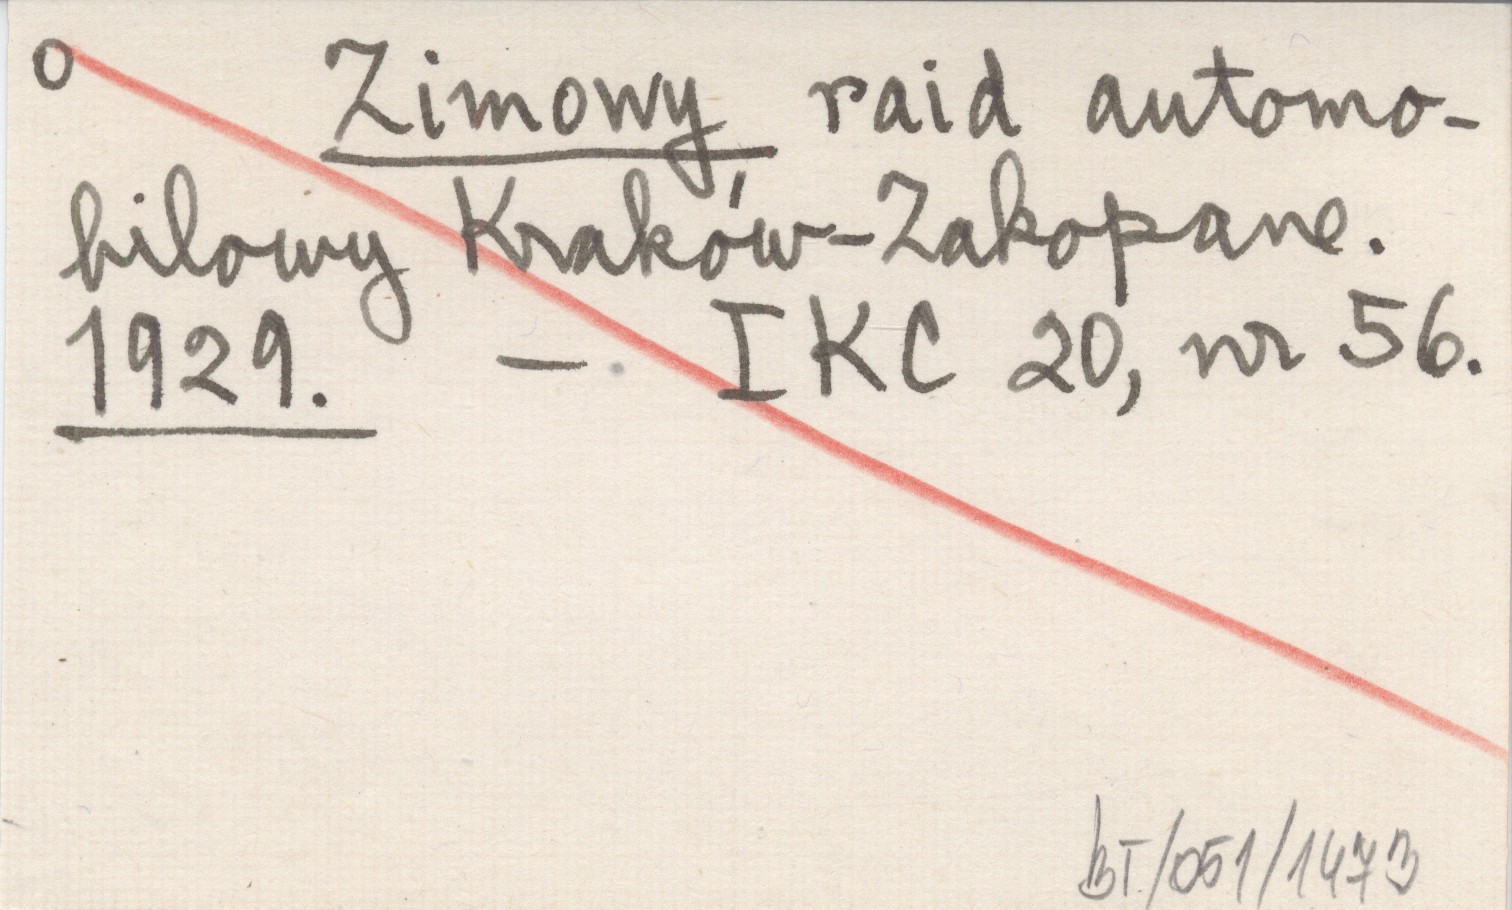 o Zimowy raid automo-
bilowy Kraków-Zakopane.
1929. - IKC 20, nr 56.
BT/051/1473